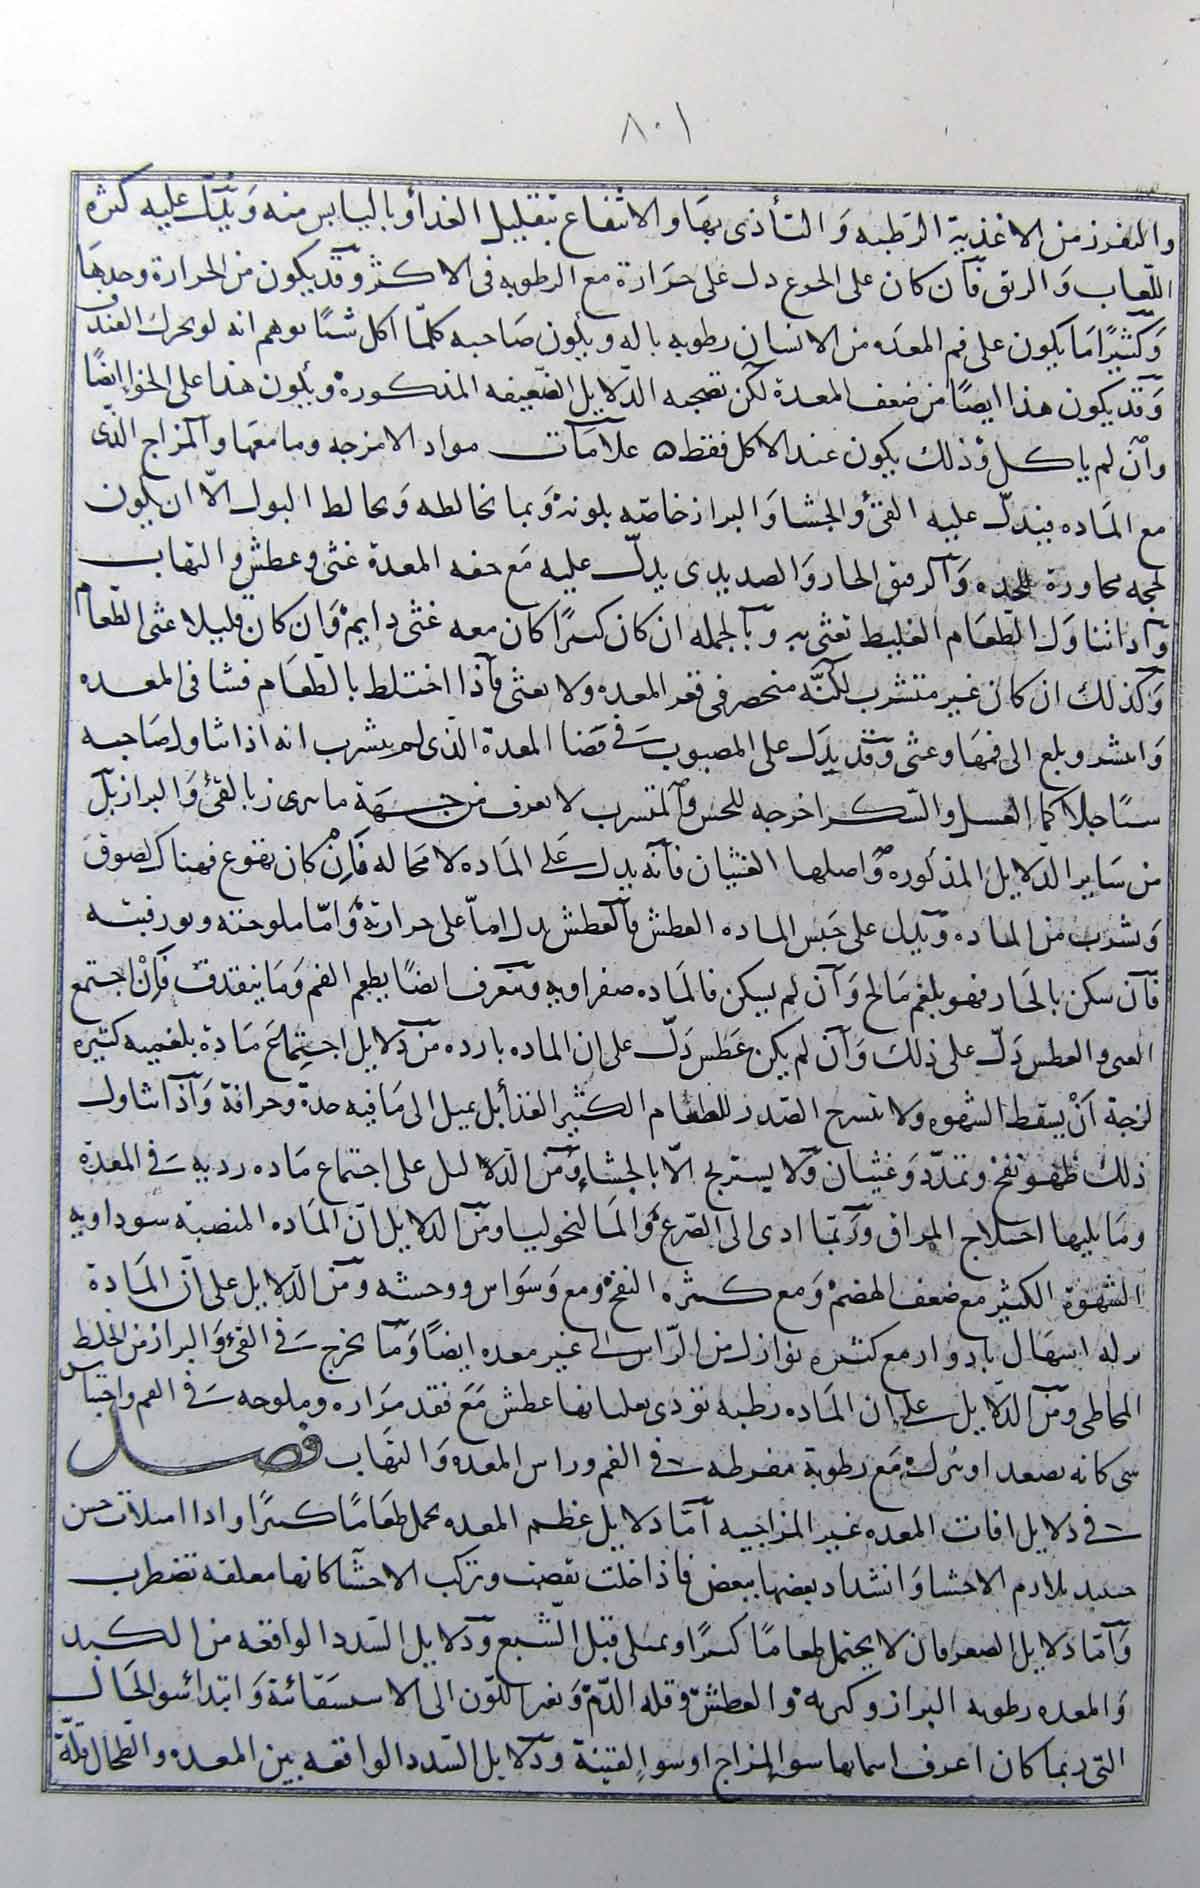 ٨٠١
والنفور من الاغذية الرطبه وَالتأذى بهَا والانتفاع بتقليل الغذأو باليابس منه وَيدُلّ عليه كثرة
اللّعاب وَالريق فآن كان على الجوع دل على حَرَارة مع الرطوبه فى الاكثر وقد يكون من الحرارة وحدهَا
وَكثيرًا مَا يكون على فم المعدَه من الانسان رطوبه باله ويكون صَاحبه كلمّا اكل شىًا توهم انه لو تحرك القذف
وَقد يكون هذا ايضًا من ضعف المعدة لكن تصحبه الدّلايل الضّعيفه المذكورة ويكون هذا على الخوا ايضًا
وآن لم ياكل وذلك يكون عند الاكل فقط ٥ علامَات مواد الامزجه وما معهَا وآلمزاج الذّى
مع المَاده فيدلّ عليه القئ والجشا وَالبراز خاصّه بلونه وَبما يخالطه وَيخالط البول الاّ ان يكون
لحجه مجاورة للحده وَآلرقيق الحار وَالصديدى يدلّ عليه مَع خفه المعدة غثى وعطش والتهاب
وَآذاتناوَل الطعَام الغليظ تغثى به وبآلجمله ان كان كثيرًا كان معه غثى دايم وَان كان قليلا غثى الطّعام
وَكذلك ان كان غير متشرب لكنّه منحصر فى قعر المعده ولا يغثى فآذا اختلط بالطّعام فشا فى المعده
وَانتشر وبلغ الى فمهَا وغثى وَقد يدَل على المصبوب فى فضا المعدة الذّى لم يتشرب انه اذا تناول صَاحبه
شىًا جلا كماء العسل والسّكر اخرجه للحس وآلمتشرب لا يعرف من جهة ما يبرز بالقئ وَالبراز بل
من سَاير الدّلايل المذكوره وَاصلها الغثيان فآنه يدل على المَاده لا محاله فَإنْ كان تهوع فهناك لصوق
وَتشرب من المَاده وَيدل على جَنس الماده العطش فآلعطش يدل امّا على حرارته وَامّا ملوحته وبورقيته
فآن سكن بالحار فهو بلغم مَالح وَآن لم يسكن فالمَاده صفراويه ويتعرف ايضًا بطعم الفم وَمَا ينقذف فَإنْ اجتمع
الغثى والعطش دَلّ على ذلك وَآن لم يكن عَطش دَلّ على ان الماده بارده من دَلايل اجتماع مَادة بلغميه كثيره
لزجة آنْ يسقط الشهوه ولا ينشرح الصّدر للطعَام الكثير الغذأ بل يميل الى مَا فيه حدة وحرافة وَآذا تناول
ذلك ظهر نفخ وتمدّد وَغثيان وَلا يستريح الاّ بالجشاء وَمن الدّلايل على اجتماع مَاده رديه فى المعدَة
ومَا يليها اختلاج المراق وَربّما ادى الى الصّرع وَالمَالنخوليا ومن الدلايل آن المَاده المنصبّه سوداويه
الشهوة الكثير مع ضعف الهضم وَمع كثره النفخ ومع وَسوَاس ووحشه ومن الدّلايل على انّ المَادة
نزله اسهَال بادوار مع كثره نوازل من الرّاس الى غير معده ايضًا وَمَا يخرج فى القئ وَالبراز من الخلط
المخاطى ومن الدّلايل على ان المَاده رطبه تؤذى بغليانها عطش مَع فقد مرَاره وملوحه فى الفم واحتباس
شى كانه يصعد او ينزل مَع رطوبة مفرطه فى الفم وراس المعده وَالتهَاب فصل
فى دلايل افات المعده غير المزاجيه آمّا دلايل عظم المعده تحمل طعَامًا كثيرًا واذا امتلات حسن
حينيذ تلازم الاحشا وَانشداد بعضها ببعض فاذا خلت تقلصت وتركت الاحشا كانها معلقه تضطرب
وَآمّا دَلايل الصغر فان لا يحتمل طعامًا كثيرًا ويمتلى قبل الشّبع وَدلايل السّدد الواقعه من الكبد
وَالمعده رطوبه البراز وكثرته والعطش وقله الدّم وَتغير اللّون الى الاستسقائة وَابتدائسو الحَال
التى ربما كان اعرف اسمايها سو المزاج اوسو القنية وَدلايل السّدد الواقعه بين المعده وَالطّحال قلّة